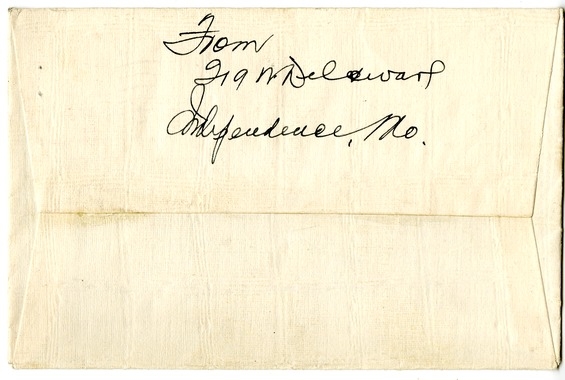 From
219 N Delaware
Independence, Mo.